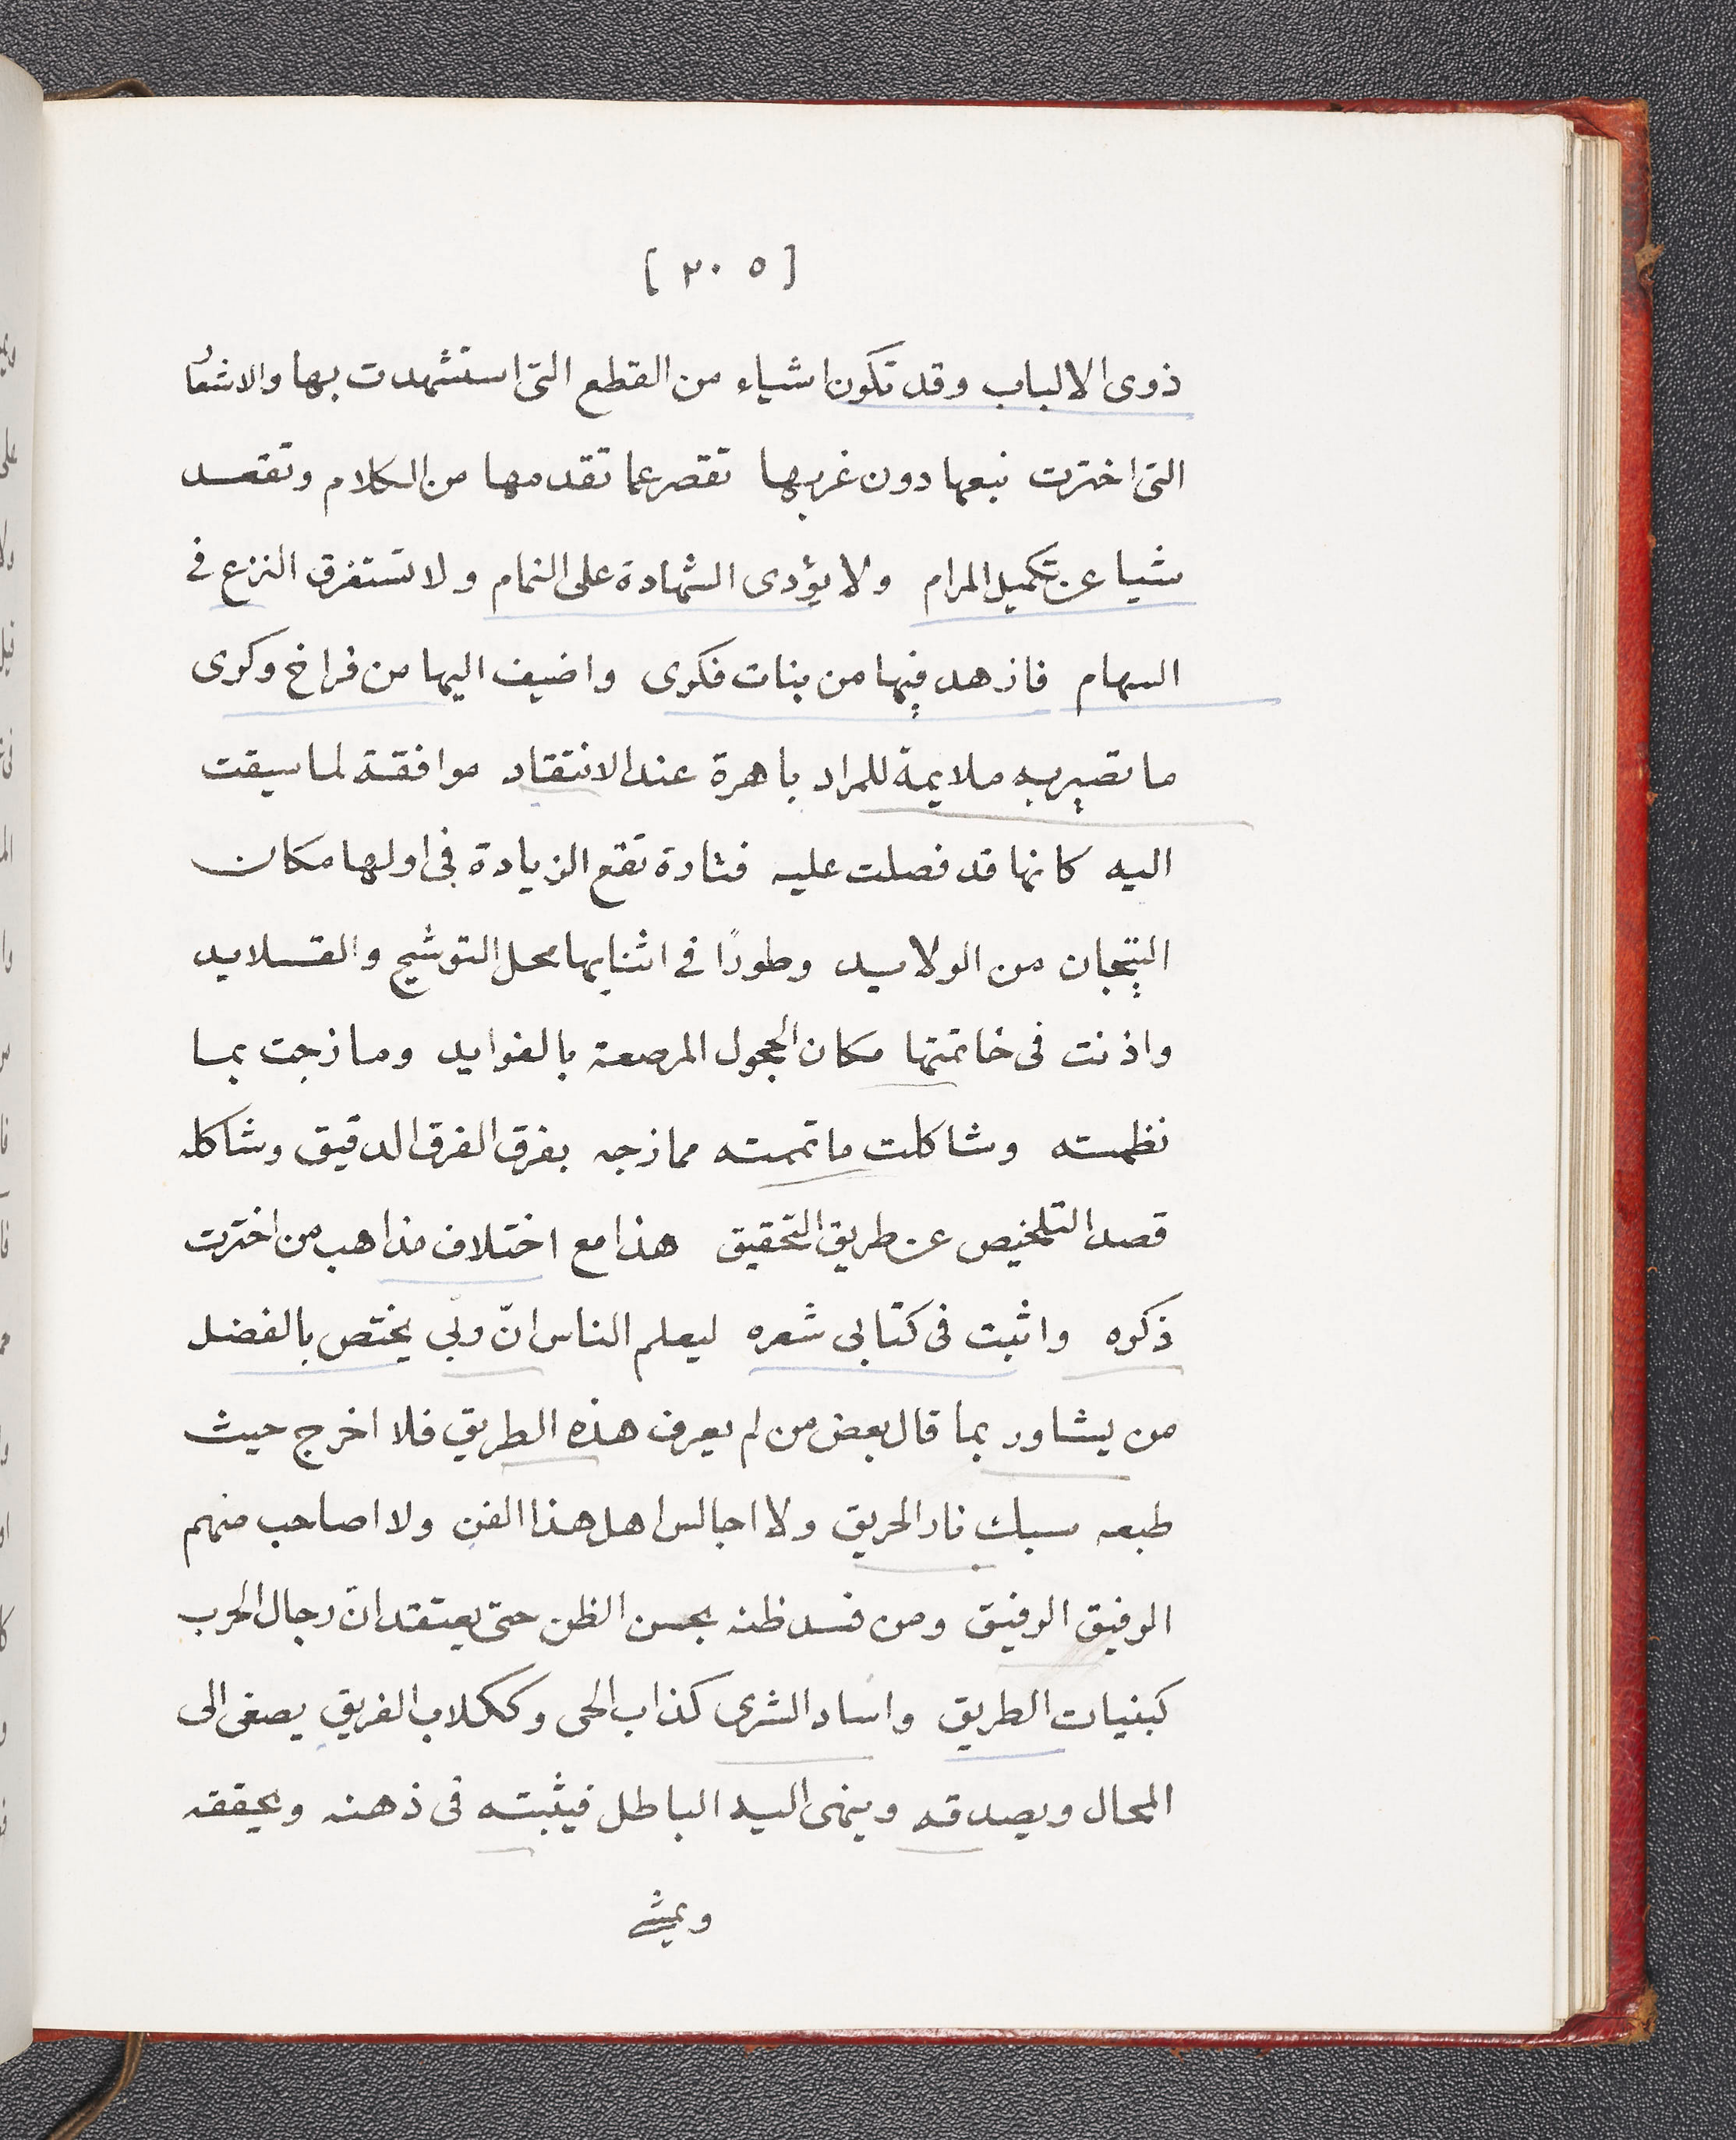 [ ٢٠٥ ]
ذوى الالباب وقد تكون اشياء من القطع التى استشهدت بها والاشعار
التى اخترت نبعها دون غربها تقصر عما تقدمها من الكلام وتقعد
شيا عن تكميل المرام ولا يؤدى الشهادة على التمام ولا تستغرق النزع فى
السهام فازهد فيها من بنات فكرى واضيف اليها من فراخ وكرى
ما تصير به ملايمة للمراد باهرة عند الانتقاد موافقة لما سيقت
اليه كانها قد فصلت عليه فتارة تقع الزيادة فى اولها مكان
التيجان من الولايد وطورًا فى اثنايها محل التوشيح والقلايد
واذنت فى خاتمتها مكان الحجول المرصعة بالفوايد ومازجت بما
نظمته وشاكلت ما تممته ممازجه بفرق الفرق الدقيق وشاكله
قصد التلخيص عن طريق التحقيق هذا مع اختلاف مذاهب من اخترت
ذكره واثبت فى كتابى شعره ليعلم الناس انّ ربى يختص بالفضل
من يشاور بما قال بعض من لم يعرف هذه الطريق فلا اخرج حيث
طبعه سبك نار الحريق ولا اجالس اهل هذا الفن ولا اصاحب منهم
الرفيق الرفيق ومن فسد ظنه بحسن الظن حتى يعتقد انّ رجال الحرب
كبنيات الطريق واساد الشرى كذاب الحى وككلاب الفريق يصغى الى
المحال ويصدقه وينهى اليه الباطل فيثبته فى ذهنه ويحققه